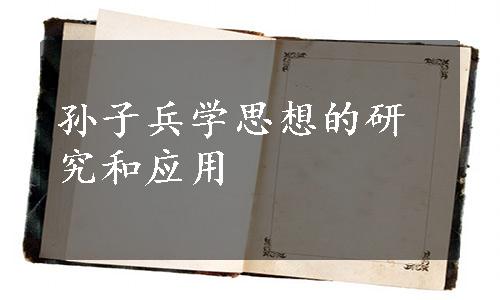 孙子兵学思想的研
究和应用